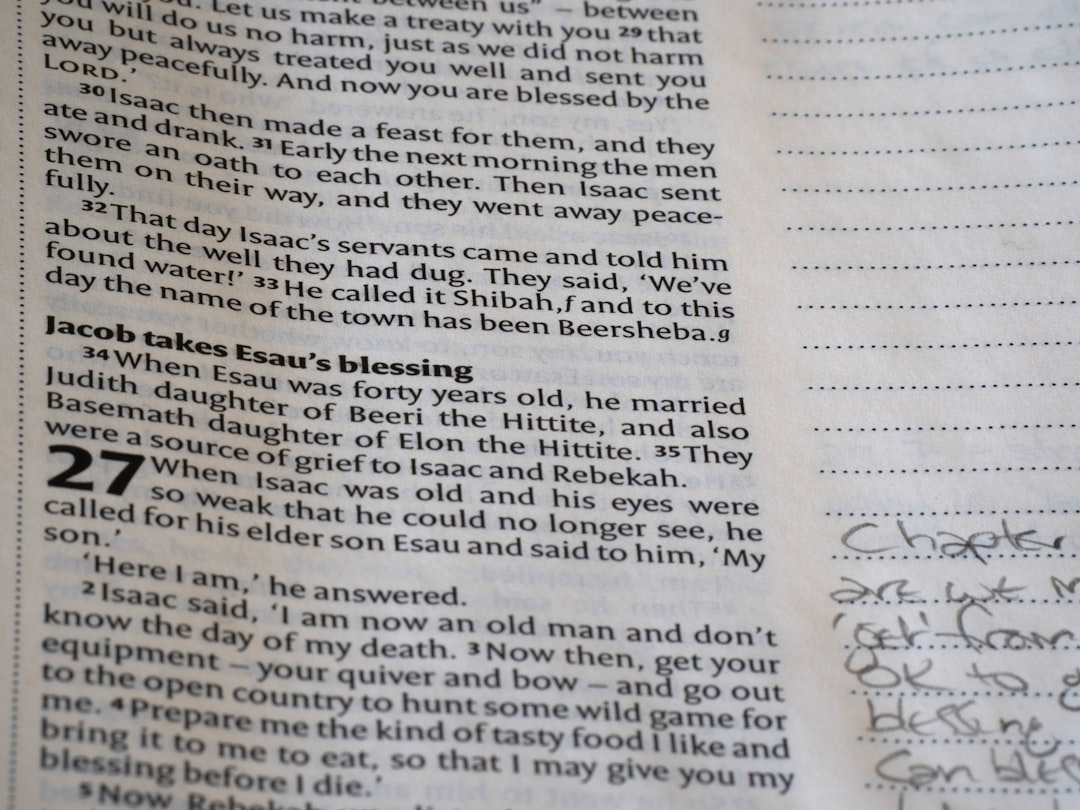 between us" – between
you. Let us make a treaty with you 29 that
you will do us no harm, just as we did not harm
you but always treated you well and sent you
away peacefully. And now you are blessed by the
LORD.'
30 Isaac then made a feast for them, and they
ate and drank. 31 Early the next morning the men
swore an oath to each other. Then Isaac sent
them on their way, and they went away peace-
fully.
32 That day Isaac's servants came and told him
about the well they had dug. They said, 'We've
found water!' 33 He called it Shibah,f and to this
day the name of the town has been Beersheba.g
Jacob takes Esau's blessing
34 When Esau was forty years old, he married
Judith daughter of Beeri the Hittite, and also
Basemath daughter of Elon the Hittite. 35 They
were a source of grief to Isaac and Rebekah.
27 When Isaac was old and his eyes were
so weak that he could no longer see, he
called for his elder son Esau and said to him, 'My
son.'
'Here I am,' he answered.
2 Isaac said, 'I am now an old man and don't
know the day of my death. 3 Now then, get your
equipment – your quiver and bow – and go out
to the open country to hunt some wild game for
me. 4 Prepare me the kind of tasty food I like and
bring it to me to eat, so that I may give you my
blessing before I die.'
5 Now Rebekah
Chapter
are
'get' from
OK to
blessing
Can